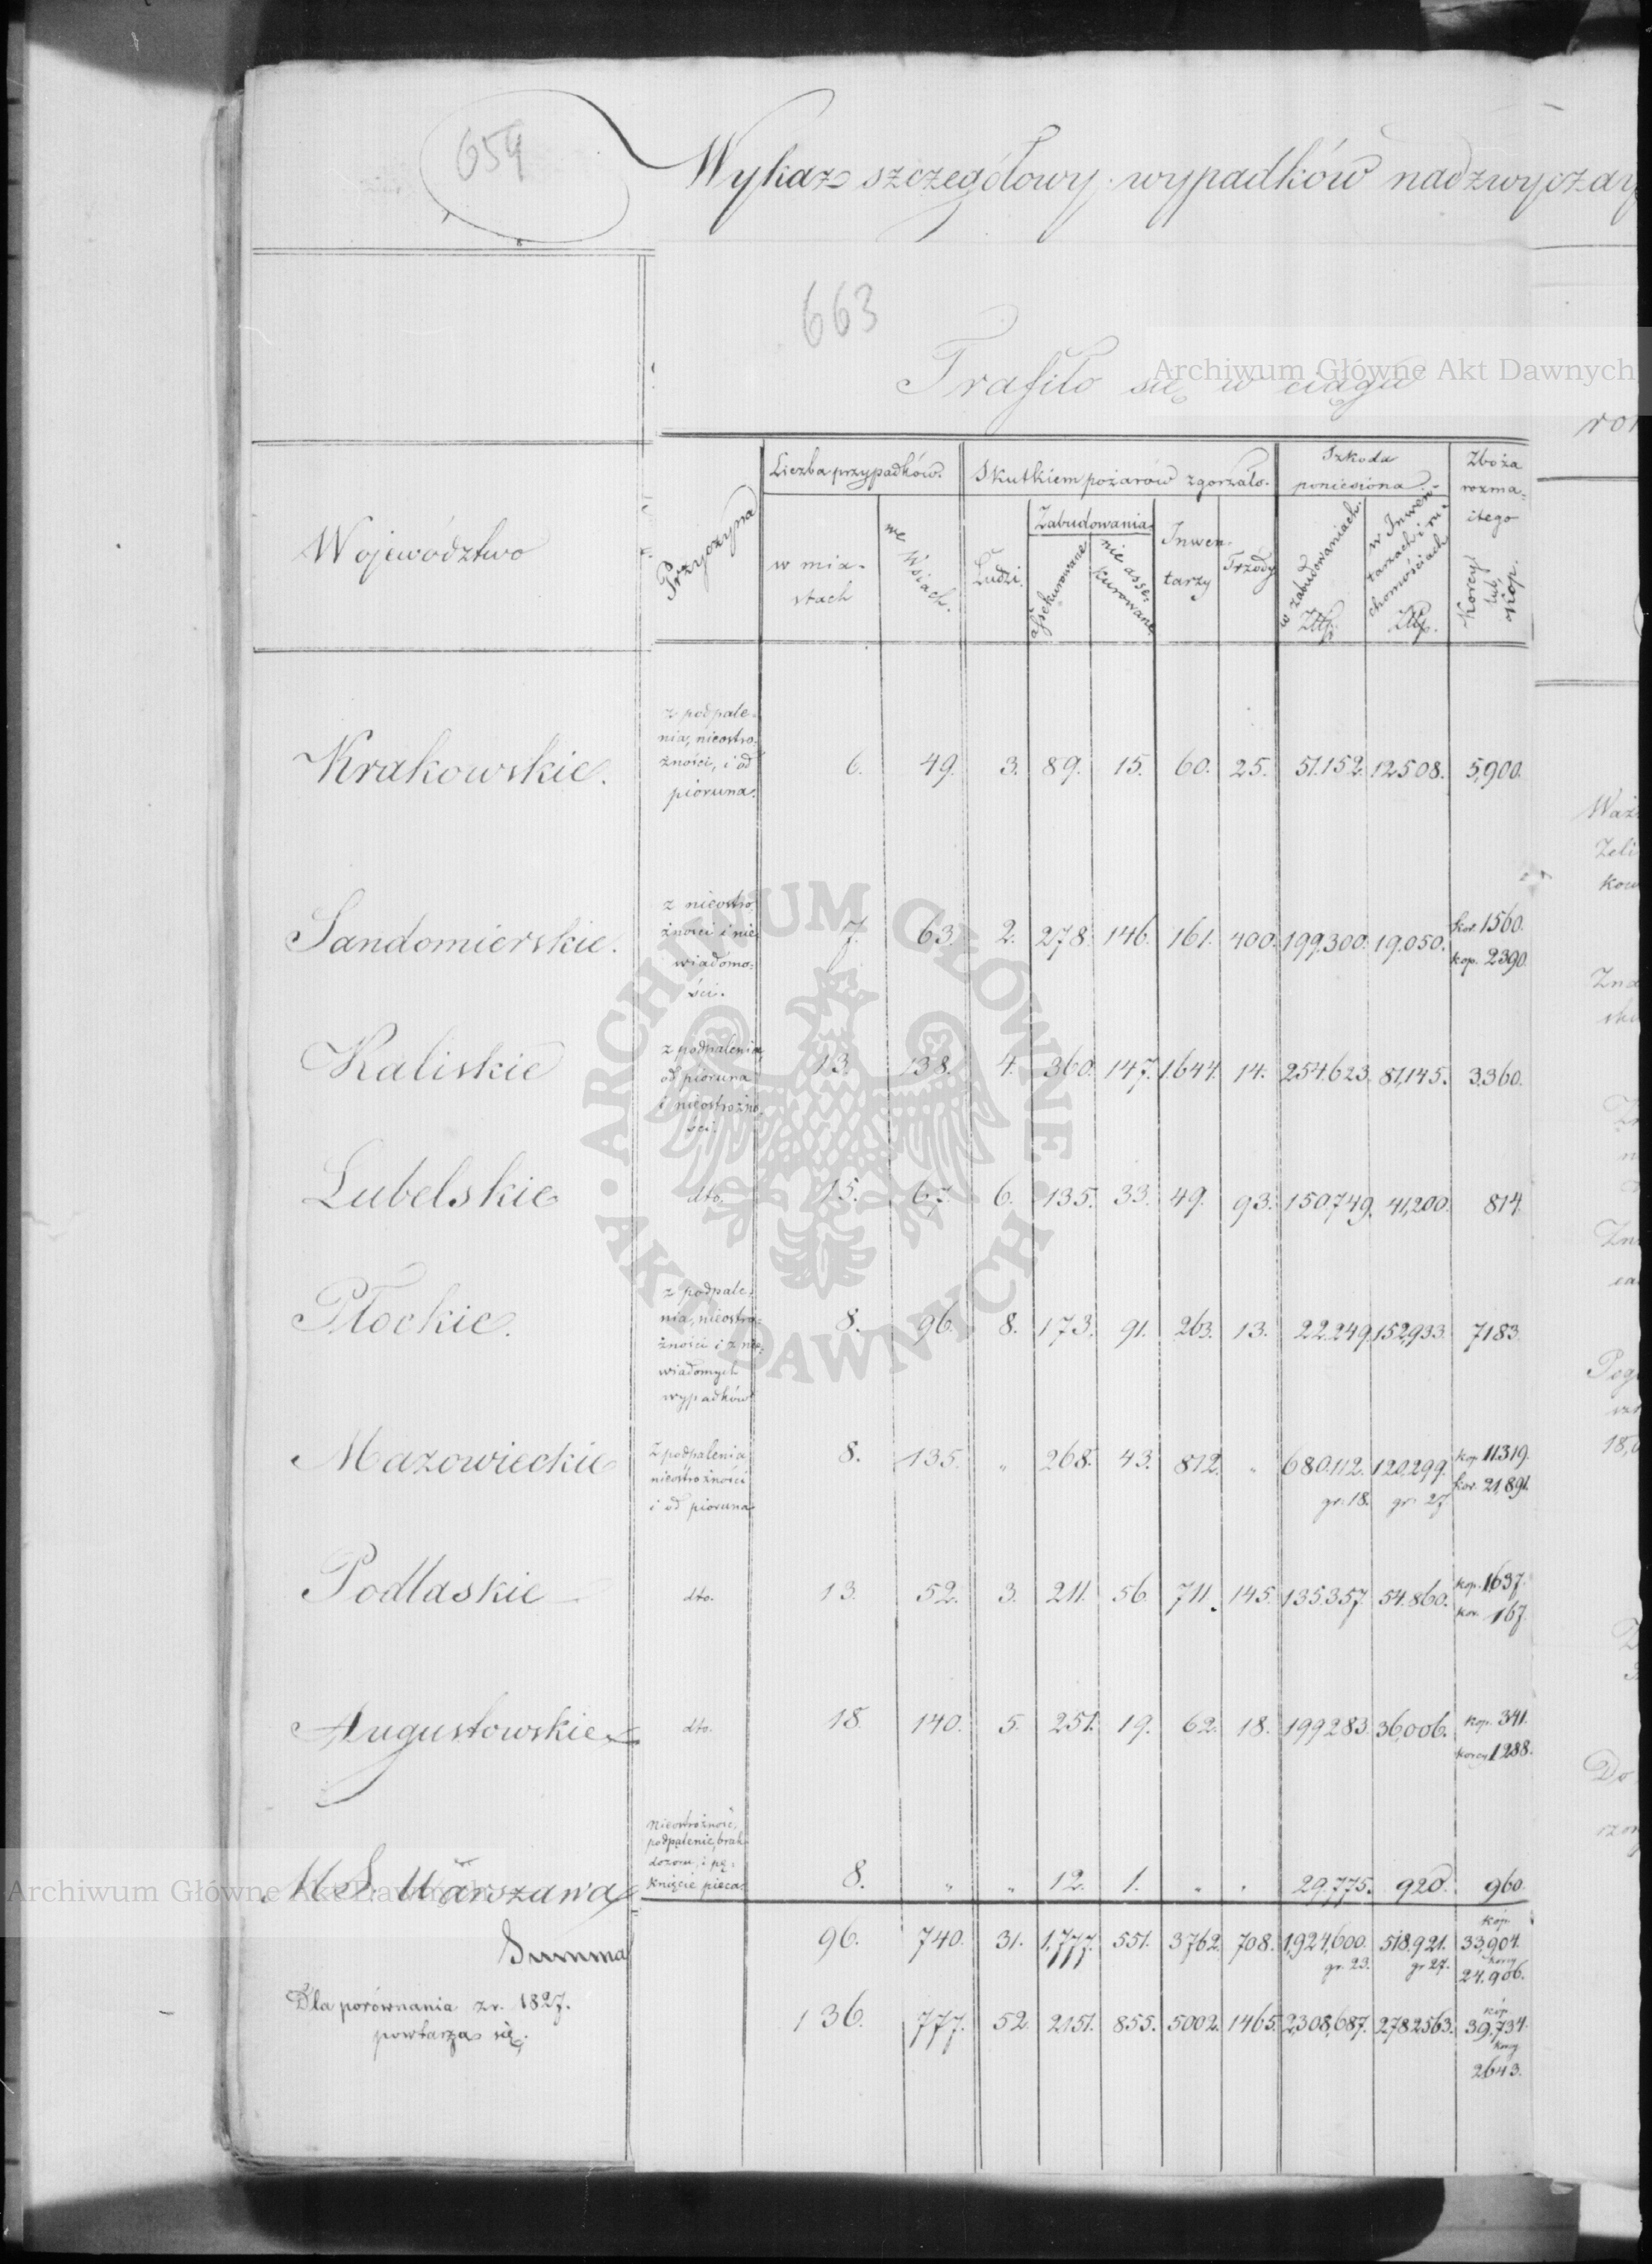 659
Wykaz szczegółowy wypadków nadzwyczay
663
Trafiło się w ciągu
Archiwum Główne Akt Dawnych
Województwo
Przyczyna
Liczba przypadków.
w mia-
stach
we Wsiach.
Skutkiem pożarów zgorzało.
Ludzi.
Zabudowania
assekurowane
nie asse-
kurowane
Inwen-
tarzy
Trzody
Szkoda
poniesiona.
w zabudowaniach.
Złtp.
w Inwen-
tarzach i ru-
chomościach
Złtp.
Zboża
rozma-
itego
Korcy
lub
kop.
Krakowskie.
z podpale-
nia, nieostro-
żności, i od
pioruna.
6. 49. 3. 89. 15. 60. 25. 51.152. 12508. 5,900.
Sandomierskie.
z nieostro-
żności i nie-
wiadomo-
ści.
7. 63. 2. 278. 146. 161. 400. 199,300. 19,050. kor. 1560.
kop. 2390.
Kaliskie
z podpalenia
od pioruna
i nieostrożno-
ści.
13. 138. 4. 360. 147. 1644. 14. 254,623. 81,145. 3,360.
Lubelskie
dto.
15. 67. 6. 135. 33. 49. 93. 150,749. 41,200. 814.
Płockie.
z podpale-
nia, nieostro-
żności i z nie-
wiadomych
wypadków
8. 96. 8. 173. 91. 263. 13. 222.249. 152,933. 7183.
Mazowieckie
z podpalenia
nieostrożności
i od pioruna
8. 135. „ 268. 43. 812. „ 680.112. 120,299. kop. 11319.
gr. 18. gr. 27 kor. 21,891.
Podlaskie
dto.
13. 52. 3. 211. 56. 711. 145. 135.357. 54.860. kop. 1,637.
kor. 167.
Augustowskie
dto.
18. 140. 5. 251. 19. 62. 18. 199283. 36,006. kop. 341.
korcy 1288.
M. S. Warszawa
Nieostrożność,
podpalenie, brak
dozoru, i pę-
knięcie pieca.
8. „ „ 12. 1. „ „ 29,775. 920. 960.
Summa
96. 740. 31. 1,777. 551. 3762. 708. 1,924,600. 518,921. kop.
33,904.
gr. 23. gr 27. korcy
24.906.
Dla porównania z r. 1827.
powtarza się;
136. 777. 52. 2151. 855. 5002. 1465. 2,308,687. 2,782563. kóp.
39,734.
korcy
2643.
ARCHIWUM GŁÓWNE AKT DAWNYCH
Archiwum Główne Akt Dawnych